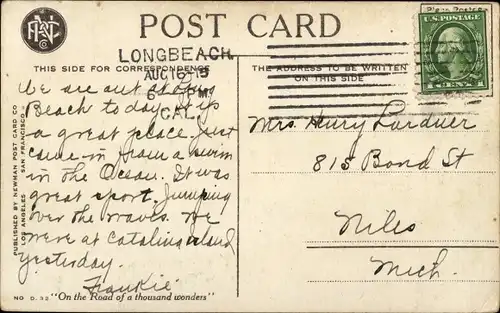 POST CARD
Place Postage
U.S. POSTAGE
LONGBEACH,
AUG 16 15
CAL.
THIS SIDE FOR CORRESPONDENCE
THE ADDRESS TO BE WRITTEN
ON THIS SIDE
We are out
Beach to day. It is
a great place. Just
came in from a swim
in the Ocean. It was
great sport. Jumping
over the waves. We
were at Catalina Island
yesterday.
Frankie
Mrs. Henry Lardner
815 Bond St
Niles
Mich.
PUBLISHED BY NEWMAN POST CARD CO
LOS ANGELES SAN FRANCISCO
NO D. 32 "On the Road of a thousand wonders"